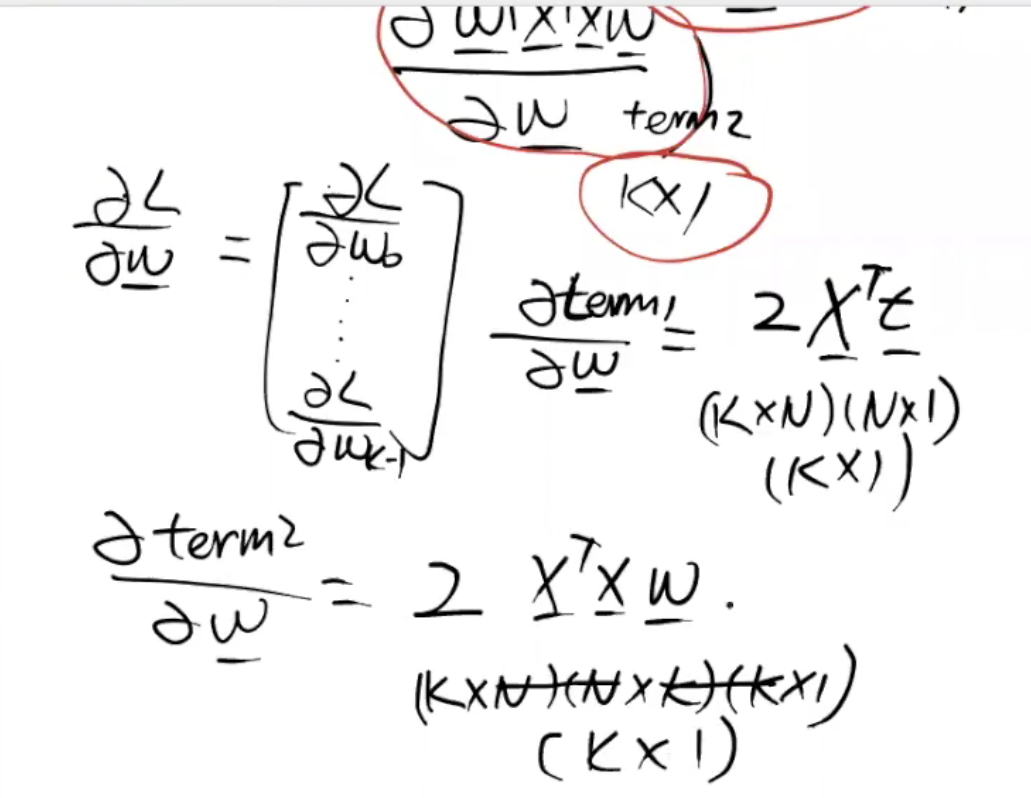 ∂ wᵀXᵀXw
∂w term2
K×1
∂L/∂w = [∂L/∂w₀ ⋮ ∂L/∂w_{K-1}]
∂term1/∂w = 2Xᵀt
(K×N)(N×1)
(K×1)
∂term2/∂w = 2 XᵀXw.
(K×N)(N×K)(K×1)
(K×1)